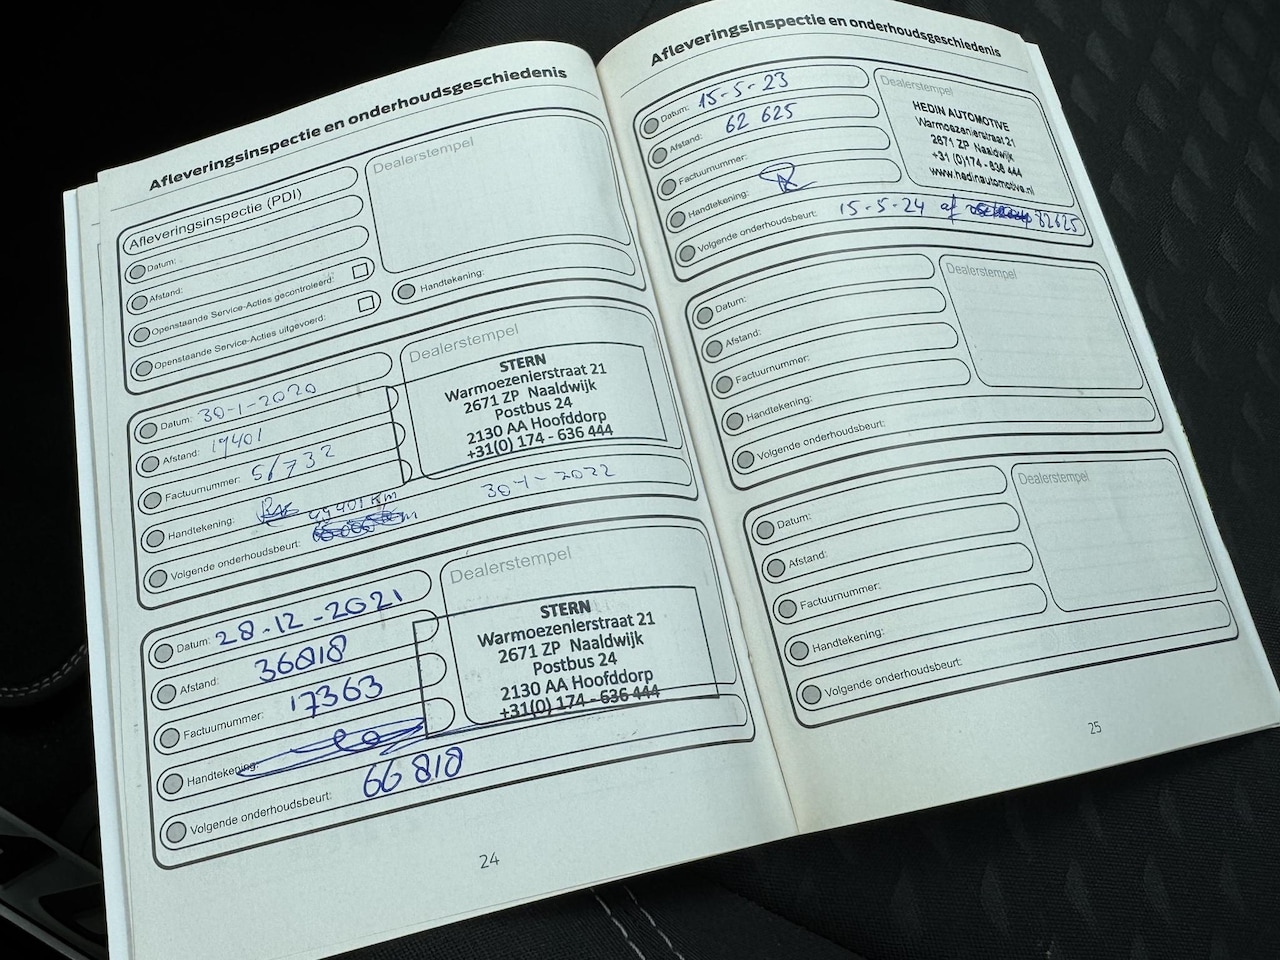 Afleveringsinspectie en onderhoudsgeschiedenis
Afleveringsinspectie (PDI)
Datum:
Afstand:
Openstaande Service-Acties gecontroleerd:
Openstaande Service-Acties uitgevoerd:
Dealerstempel
Handtekening:
Datum: 30-1-2020
Afstand: 19401
Factuurnummer: 56732
Handtekening:
Volgende onderhoudsbeurt: 49401 km 30-1-2022
Dealerstempel
STERN
Warmoezenierstraat 21
2671 ZP Naaldwijk
Postbus 24
2130 AA Hoofddorp
+31(0) 174 - 636 444
Datum: 28-12-2021
Afstand: 36818
Factuurnummer: 17363
Handtekening:
Volgende onderhoudsbeurt: 66818
Dealerstempel
STERN
Warmoezenierstraat 21
2671 ZP Naaldwijk
Postbus 24
2130 AA Hoofddorp
+31(0) 174 - 636 444
24
Afleveringsinspectie en onderhoudsgeschiedenis
Datum: 15-5-23
Afstand: 62 625
Factuurnummer:
Handtekening:
Volgende onderhoudsbeurt: 15-5-24 of 82625
Dealerstempel
HEDIN AUTOMOTIVE
Warmoezenierstraat 21
2671 ZP Naaldwijk
+31 (0)174 - 636 444
www.hedinautomotive.nl
Datum:
Afstand:
Factuurnummer:
Handtekening:
Volgende onderhoudsbeurt:
Dealerstempel
Datum:
Afstand:
Factuurnummer:
Handtekening:
Volgende onderhoudsbeurt:
Dealerstempel
25